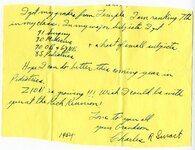 I got my grades from Temple. I am ranking 7th
in my class. In my major subjects I got
91 Surgery
90 Medicine
90 OB + GYN & a host of small subjects
85 Pediatrics
Hope I can do better this coming year in
Pediatrics.
ZION is growing!!! Wish I could be with
you at the Reunion!
Love to you all
your Grandson
Charles R Swart
1954